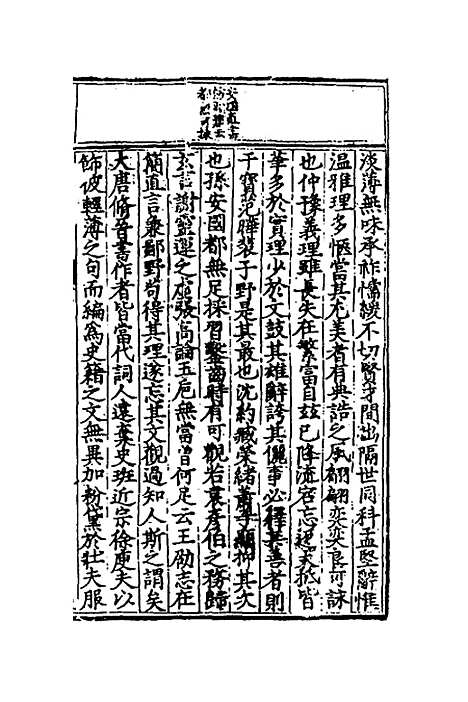 淡薄無味承祚懦緩不切賢才間出隔世同科孟堅辭惟
温雅理多愜當其尤美者有典誥之風翩翩奕奕良可詠
也仲豫義理雖長失在繁富自兹已降流宕忘返大抵皆
華多於實理少於文鼓其雄辭誇其儷事必擇其善者則
干寶范曄裴子野是其最也沈約臧榮緒蕭子顯抑其次
也孫安國都無足採習鑿齒時有可觀若袁彦伯之務歸
玄言謝靈運之虛張高論玉巵無當曽何足云王劭志在
簡直言兼鄙野苟得其理遂忘其文觀過知人斯之謂矣
大唐脩晉書作者皆當代詞人遠棄史班近宗徐庾夫以
飾彼輕薄之句而編爲史籍之文無異加粉黛於壯夫服